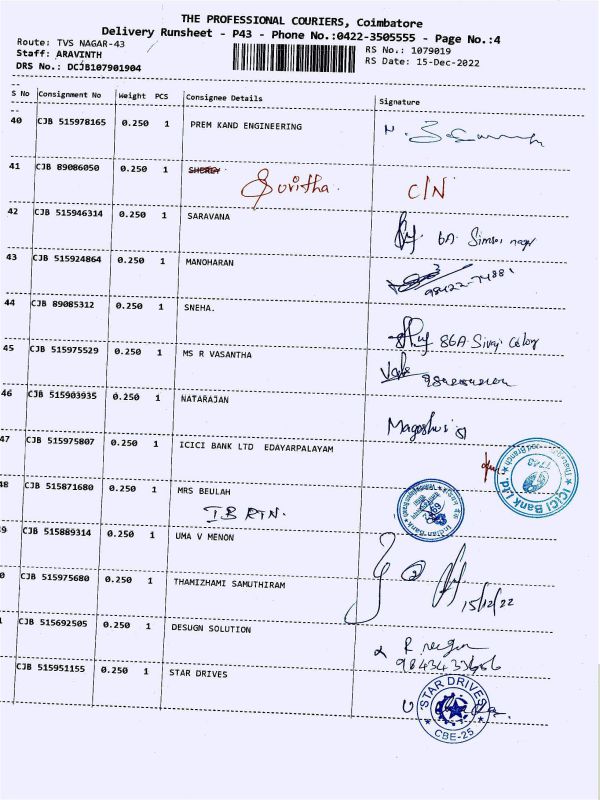 THE PROFESSIONAL COURIERS, Coimbatore
Delivery Runsheet - P43 - Phone No.:0422-3505555 - Page No.:4
Route: TVS NAGAR-43
RS No.: 1079019
Staff: ARAVINTH
RS Date: 15-Dec-2022
DRS No.: DCJB107901904
S No Consignment No Weight PCS Consignee Details Signature
40 CJB 515978165 0.250 1 PREM KAND ENGINEERING
41 CJB 89086050 0.250 1
C/N
42 CJB 515946314 0.250 1 SARAVANA
6A
43 CJB 515924864 0.250 1 MANOHARAN
98422-74881
44 CJB 89085312 0.250 1 SNEHA.
86A Sivaji Colony
45 CJB 515975529 0.250 1 MS R VASANTHA
46 CJB 515903935 0.250 1 NATARAJAN
47 CJB 515975807 0.250 1 ICICI BANK LTD EDAYARPALAYAM
ICICI Bank Ltd.
48 CJB 515871680 0.250 1 MRS BEULAH
IB RTN.
Indian Bank
9 CJB 515889314 0.250 1 UMA V MENON
0 CJB 515975680 0.250 1 THAMIZHAMI SAMUTHIRAM
15/12/22
CJB 515692505 0.250 1 DESUGN SOLUTION
CJB 515951155 0.250 1 STAR DRIVES
STAR DRIVES
CBE-25